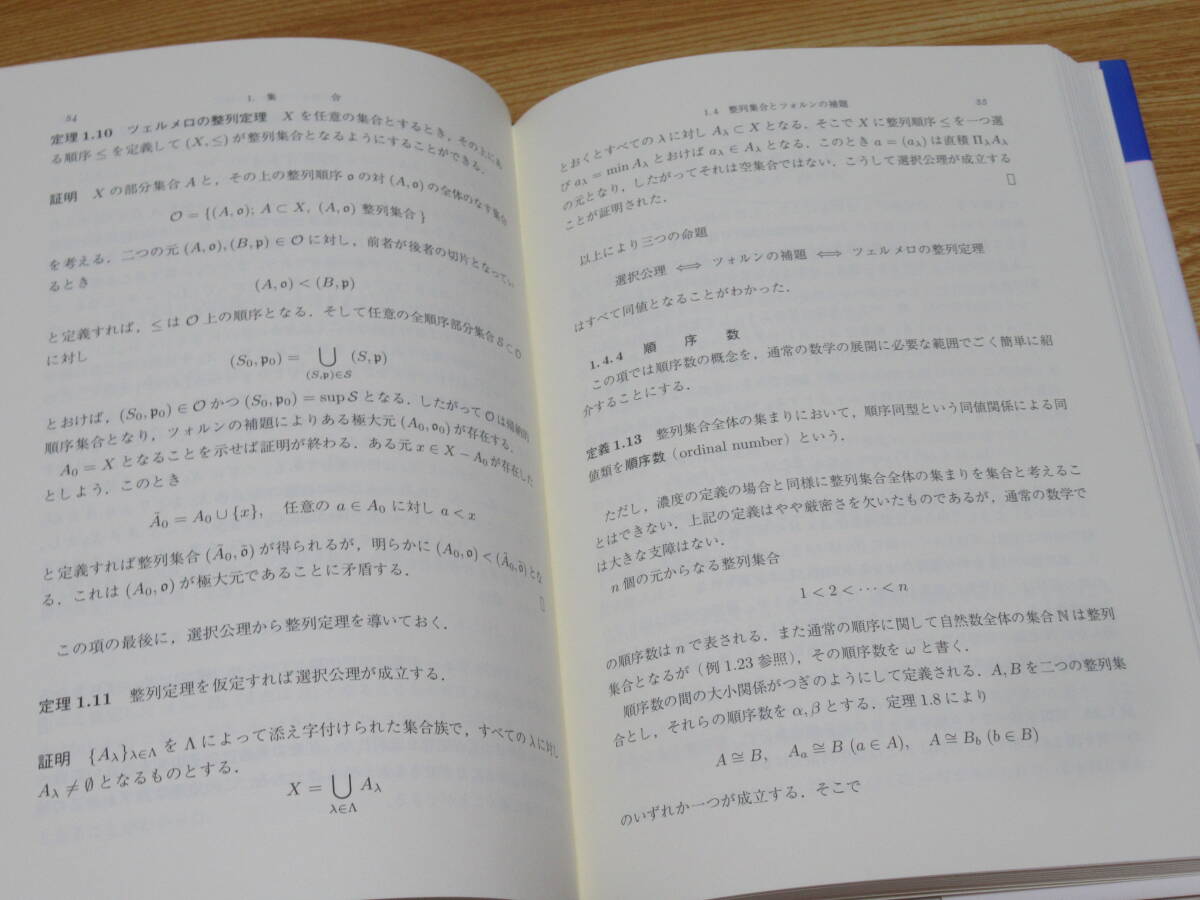 54
1. 集　合
定理 1.10 ツェルメロの整列定理 X を任意の集合とするとき,その上にあ
る順序 ≤ を定義して (X, ≤) が整列集合となるようにすることができる.
証明 X の部分集合 A と,その上の整列順序 𝔬 の対 (A, 𝔬) の全体のなす集合
𝒪 = {(A, 𝔬); A ⊂ X, (A, 𝔬) 整列集合 }
を考える.二つの元 (A, 𝔬), (B, 𝔭) ∈ 𝒪 に対し,前者が後者の切片となってい
るとき
(A, 𝔬) < (B, 𝔭)
と定義すれば,≤ は 𝒪 上の順序となる.そして任意の全順序部分集合 𝒮 ⊂ 𝒪
に対し
(S₀, 𝔭₀) = ⋃ (S, 𝔭)
(S,𝔭)∈𝒮
とおけば,(S₀, 𝔭₀) ∈ 𝒪 かつ (S₀, 𝔭₀) = sup 𝒮 となる.したがって 𝒪 は帰納的
順序集合となり,ツォルンの補題によりある極大元 (A₀, 𝔬₀) が存在する.
A₀ = X となることを示せば証明が終わる.ある元 x ∈ X − A₀ が存在した
としよう.このとき
Ã₀ = A₀ ∪ {x}, 任意の a ∈ A₀ に対し a < x
と定義すれば整列集合 (Ã₀, õ) が得られるが,明らかに (A₀, 𝔬) < (Ã₀, õ) とな
る.これは (A₀, 𝔬) が極大元であることに矛盾する.
□
この項の最後に,選択公理から整列定理を導いておく.
定理 1.11 整列定理を仮定すれば選択公理が成立する.
証明 {A_λ}_λ∈Λ を Λ によって添え字付けられた集合族で,すべての λ に対し
A_λ ≠ ∅ となるものとする.
X = ⋃ A_λ
λ∈Λ
1.4 整列集合とツォルンの補題
55
とおくとすべての λ に対し A_λ ⊂ X となる.そこで X に整列順序 ≤ を一つ選
び a_λ = min A_λ とおけば a_λ ∈ A_λ となる.このとき a = (a_λ) は直積 Π_λ A_λ
の元となり,したがってそれは空集合ではない.こうして選択公理が成立する
ことが証明された.
□
以上により三つの命題
選択公理 ⟺ ツォルンの補題 ⟺ ツェルメロの整列定理
はすべて同値となることがわかった.
1.4.4 順 序 数
この項では順序数の概念を,通常の数学の展開に必要な範囲でごく簡単に紹
介することにする.
定義 1.13 整列集合全体の集まりにおいて,順序同型という同値関係による同
値類を順序数(ordinal number)という.
ただし,濃度の定義の場合と同様に整列集合全体の集まりを集合と考えるこ
とはできない.上記の定義はやや厳密さを欠いたものであるが,通常の数学で
は大きな支障はない.
n 個の元からなる整列集合
1 < 2 < ⋯ < n
の順序数は n で表される.また通常の順序に関して自然数全体の集合 ℕ は整列
集合となるが(例 1.23 参照),その順序数を ω と書く.
順序数の間の大小関係がつぎのようにして定義される.A, B を二つの整列集
合とし,それらの順序数を α, β とする.定理 1.8 により
A ≅ B, A_a ≅ B (a ∈ A), A ≅ B_b (b ∈ B)
のいずれか一つが成立する.そこで